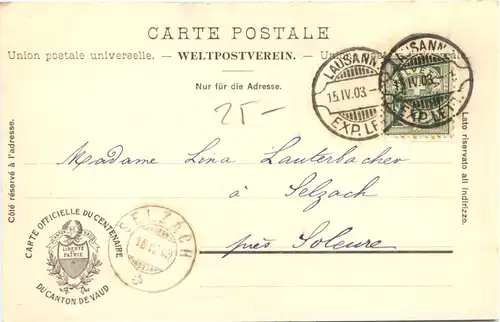 CARTE POSTALE
Union postale universelle. — WELTPOSTVEREIN. — Un
Nur für die Adresse.
25 –
LAUSANNE
15.IV.03.
EXP. LETT.
LAUSANNE
IV. 03
EXP. LETT.
Côté réservé à l'adresse.
Lato riservato all indirizzo.
Madame Lina Lauterbacher
à Selzach
près Soleure
SELZACH
16.IV.03
CARTE OFFICIELLE DU CENTENAIRE
LIBERTÉ
ET
PATRIE
DU CANTON DE VAUD